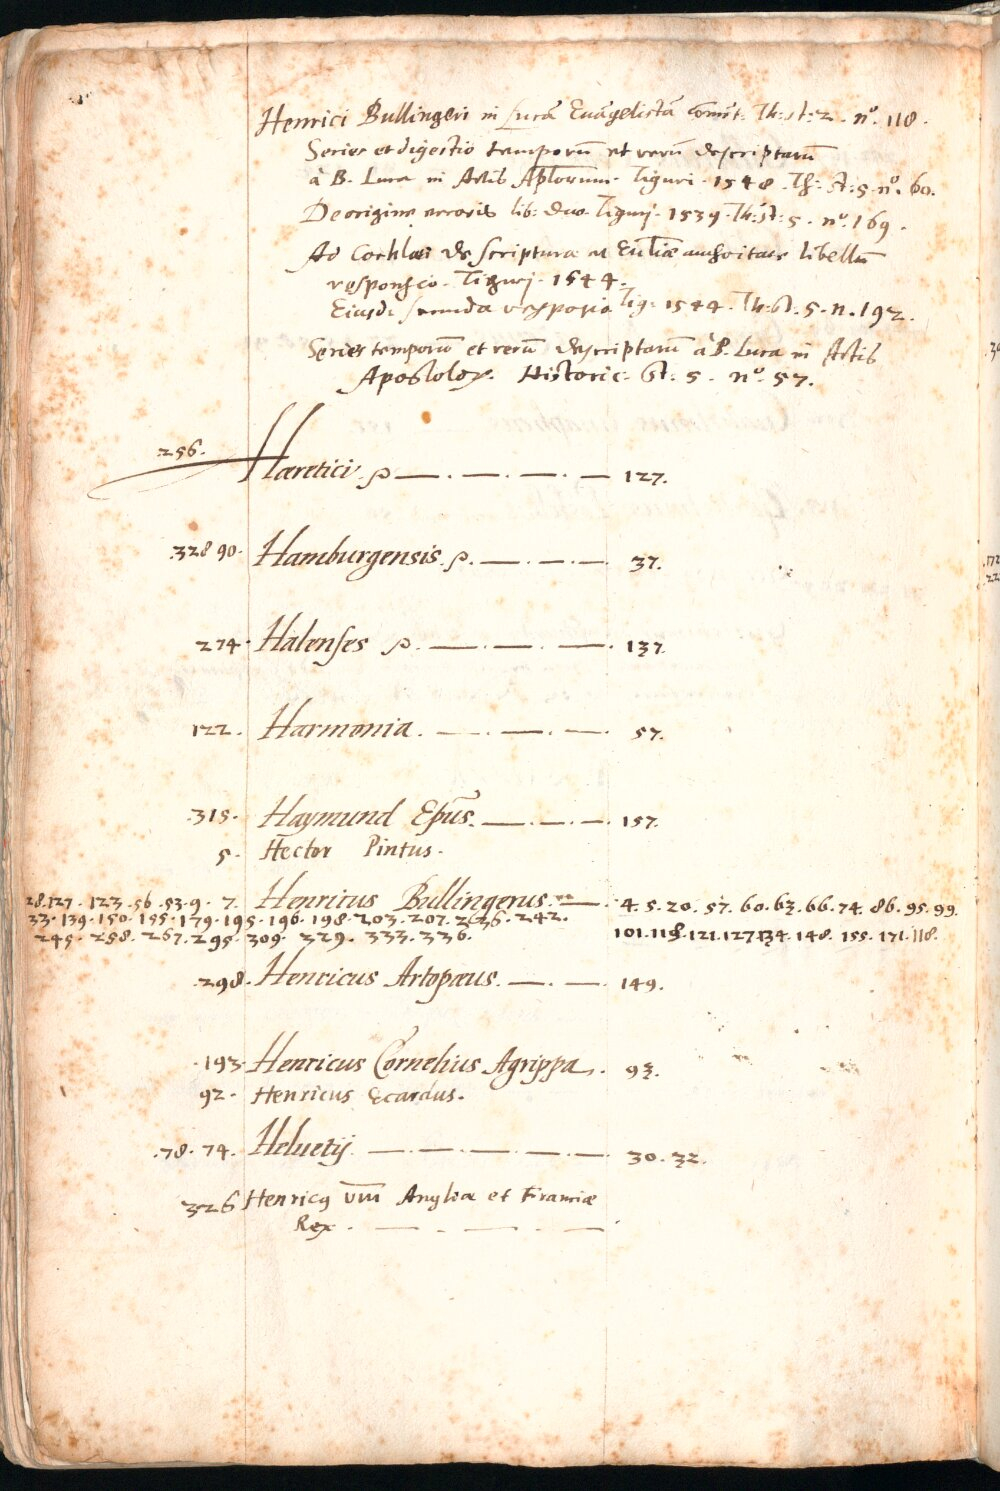 Henrici Bullingeri in Lucā Euāgelistā Com̄t: Th: st: 2. nº. 118.
Series et digestio temporū et rerū descriptarū
à B. Luca in Actis Aplorum. Tiguri. 1548. Th: st: 5. nº. 60.
De origine erroris lib: duo Tiguri. 1539. Th: st: 5. nº. 169.
Ad Cochlei de scripturæ et Eccliæ authoritate libellū
responsio. Tiguri. 1544.
Eiusd: secunda responsio Tig: 1544. Th: st. 5. n. 192.
Series temporū et rerū descriptarū à B. Luca in Actis
Apostolor. Historic: st: 5. nº. 57.
256. Hæretici. 127.
328 90. Hamburgensis. 37.
274. Halenses 137.
122. Harmonia. 57.
315. Haymund Ep̄us. 157.
5. Hector Pintus.
28. 127. 123. 56. 53. 9. 7. Henricus Bullingerus. 4. 5. 20. 57. 60. 63. 66. 74. 86. 95. 99.
33. 139. 150. 155. 179. 195. 196. 198. 203. 207. 242.
101. 118. 121. 127. 134. 148. 155. 171. 118.
245. 258. 267. 295. 309. 329. 333. 336.
298. Henricus Artopæus. 149.
193. Henricus Cornelius Agrippa. 93.
92. Henricus Ecardus.
78. 74. Heluetij 30. 32.
326 Henricq VIII Angliæ et Franciæ
Rex.